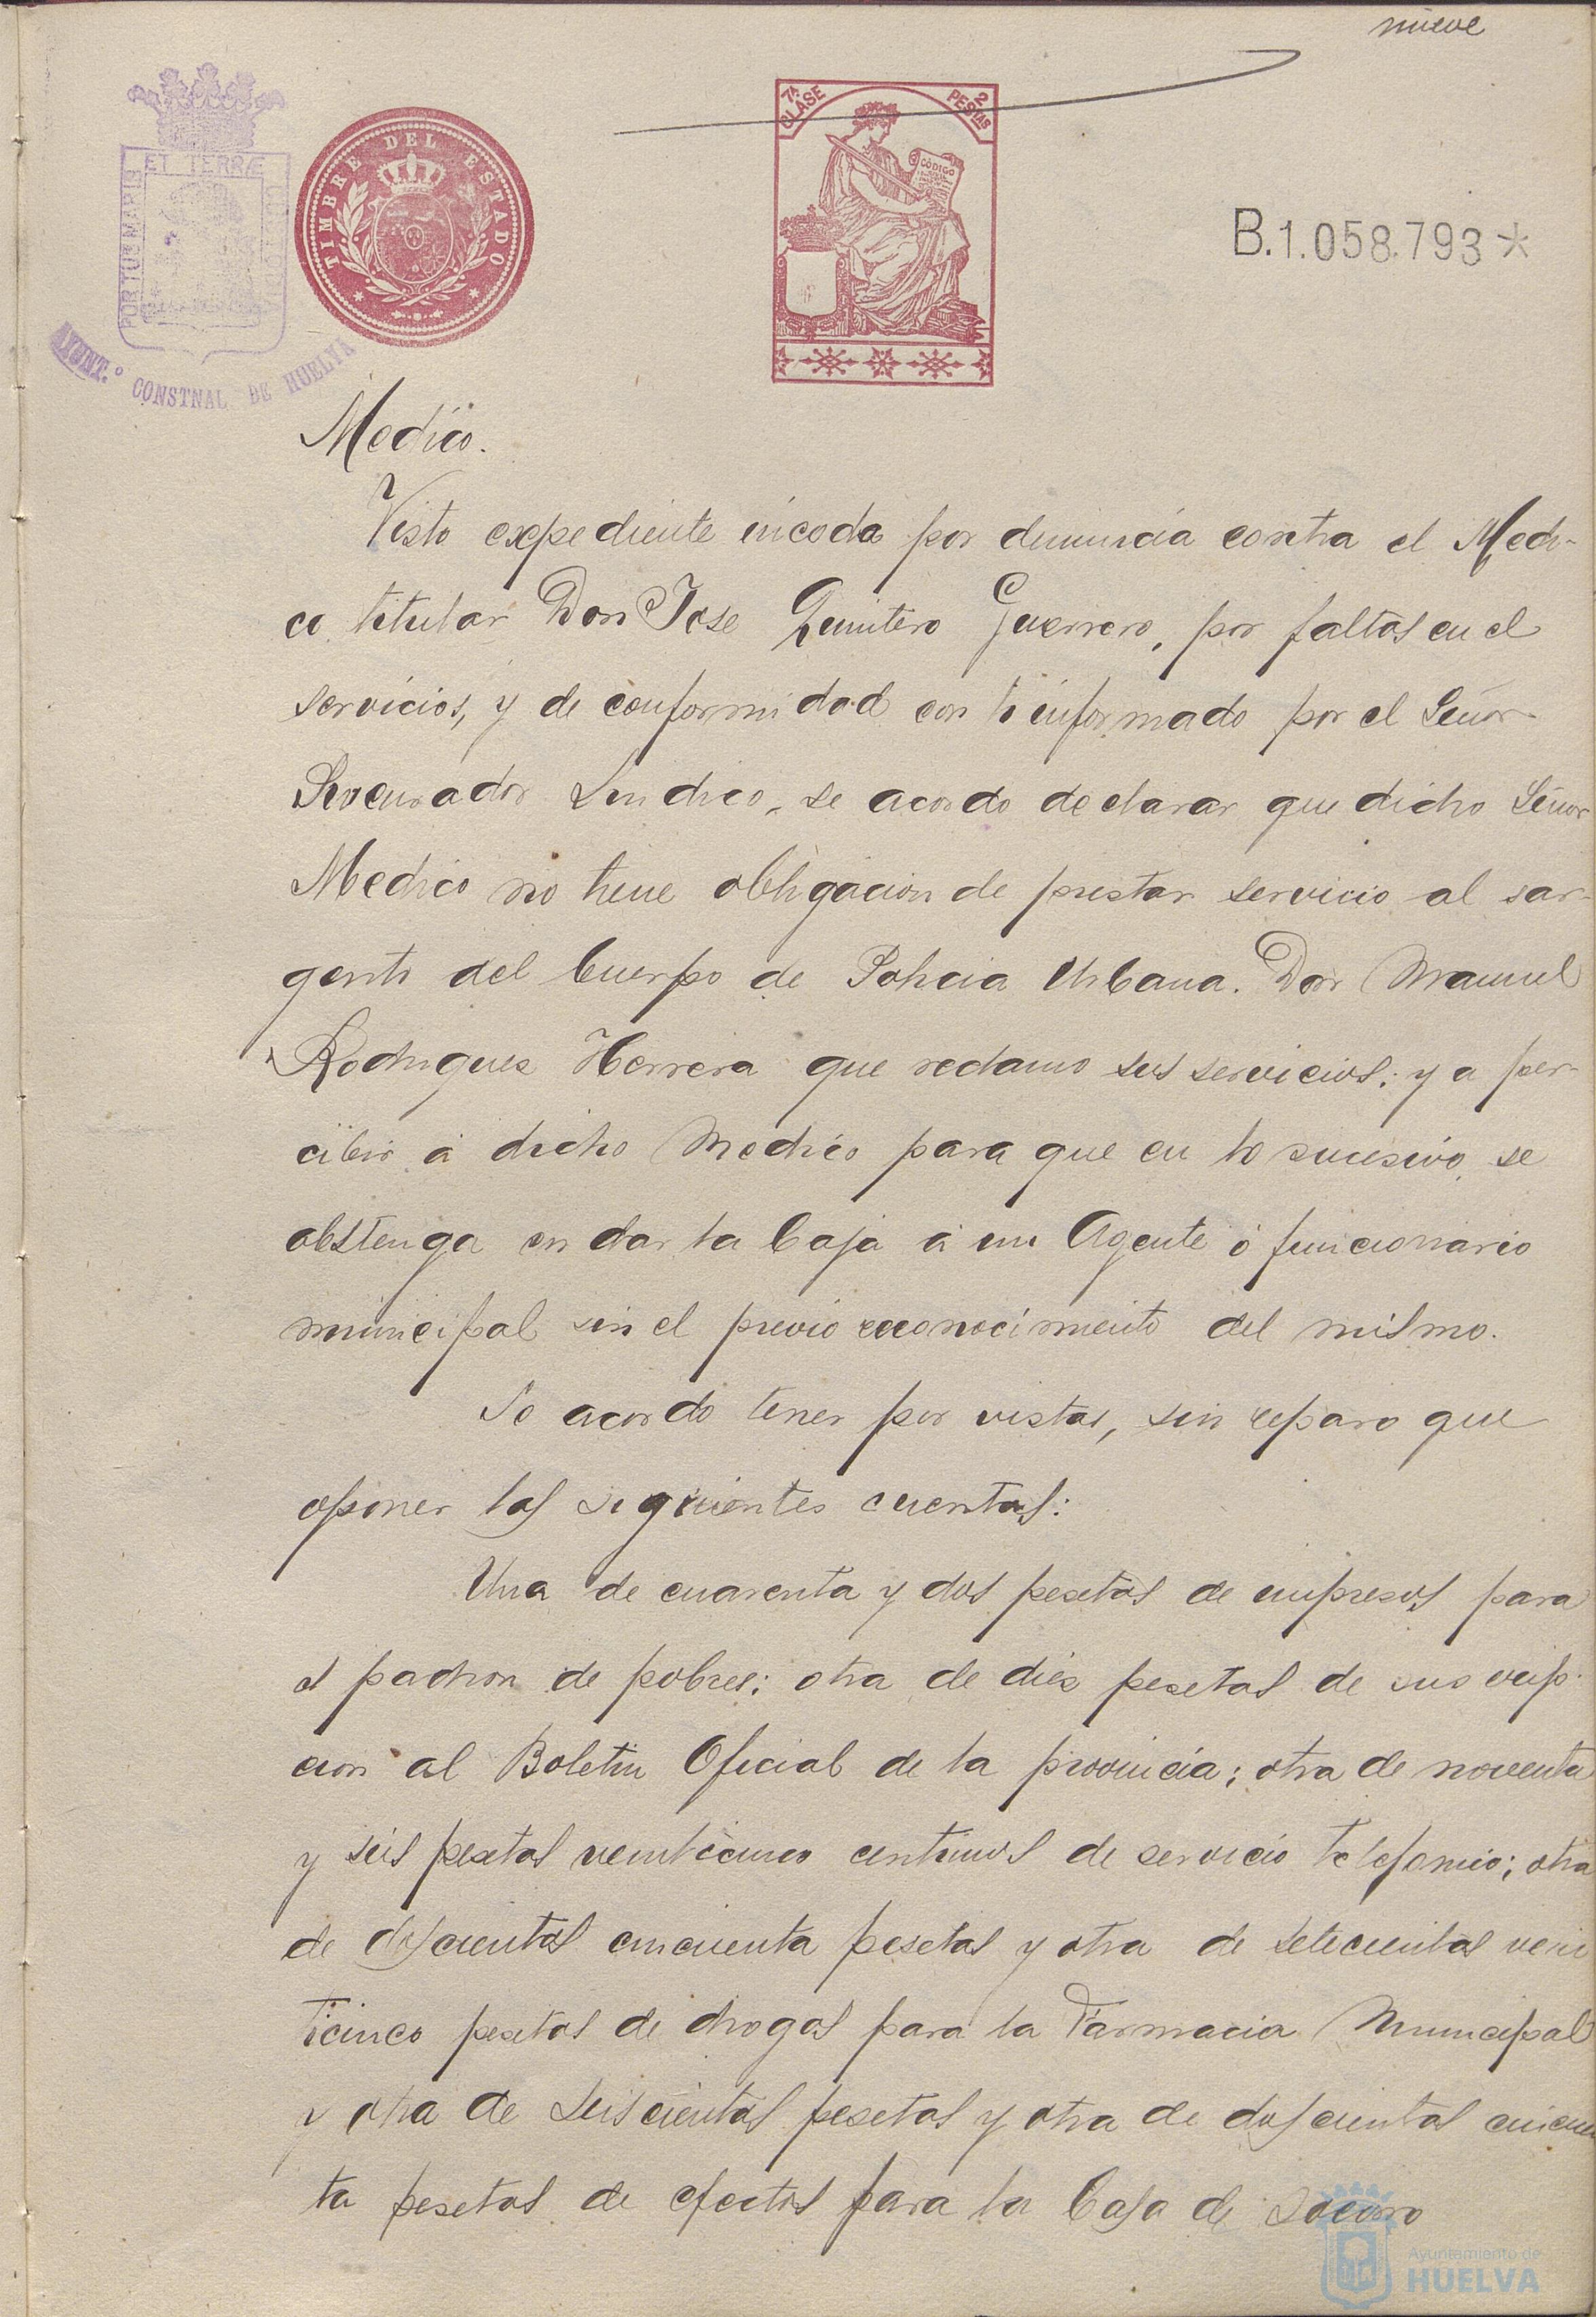 nueve
7ª CLASE
2 PESTAS
CÓDIGO
TIMBRE DEL ESTADO
ET TERRÆ
PORTUS MARIS
AYUNT.º CONSTNAL DE HUELVA
B.1.058.793*
Medico.
Visto expediente incoda por denuncia contra el Medi-
co titular Don Jose Quintero Guerrero, por faltas en el
servicios, y de conformidad con lo informado por el Señor
Procurador Sindico, se acordo declarar que dicho Señor
Medico no tiene obligacion de prestar servicio al sar-
gento del Cuerpo de Policia Urbana. Don Manuel
Rodriguez Herrera que reclamo sus servicios; y a per-
cibir á dicho Medico para que en lo sucesivo se
abstenga en dar la baja á un Agente ó funcionario
municipal sin el previo reconocimiento del mismo.
Se acordo tener por vistas, sin reparo que
oponer las siguientes cuentas:
Una de cuarenta y dos pesetas de impresos para
el padron de pobres; otra de diez pesetas de suscrip-
cion al Boletin Oficial de la provincia; otra de noventa
y seis pesetas veinticinco centimos de servicio telefonico; otra
de doscientas cincuenta pesetas y otra de setecientas vein
ticinco pesetas de drogas para la Farmacia Municipal
y otra de seiscientas pesetas y otra de doscientas cincuen
ta pesetas de efectos para la Casa de Socorro
Ayuntamiento de
HUELVA